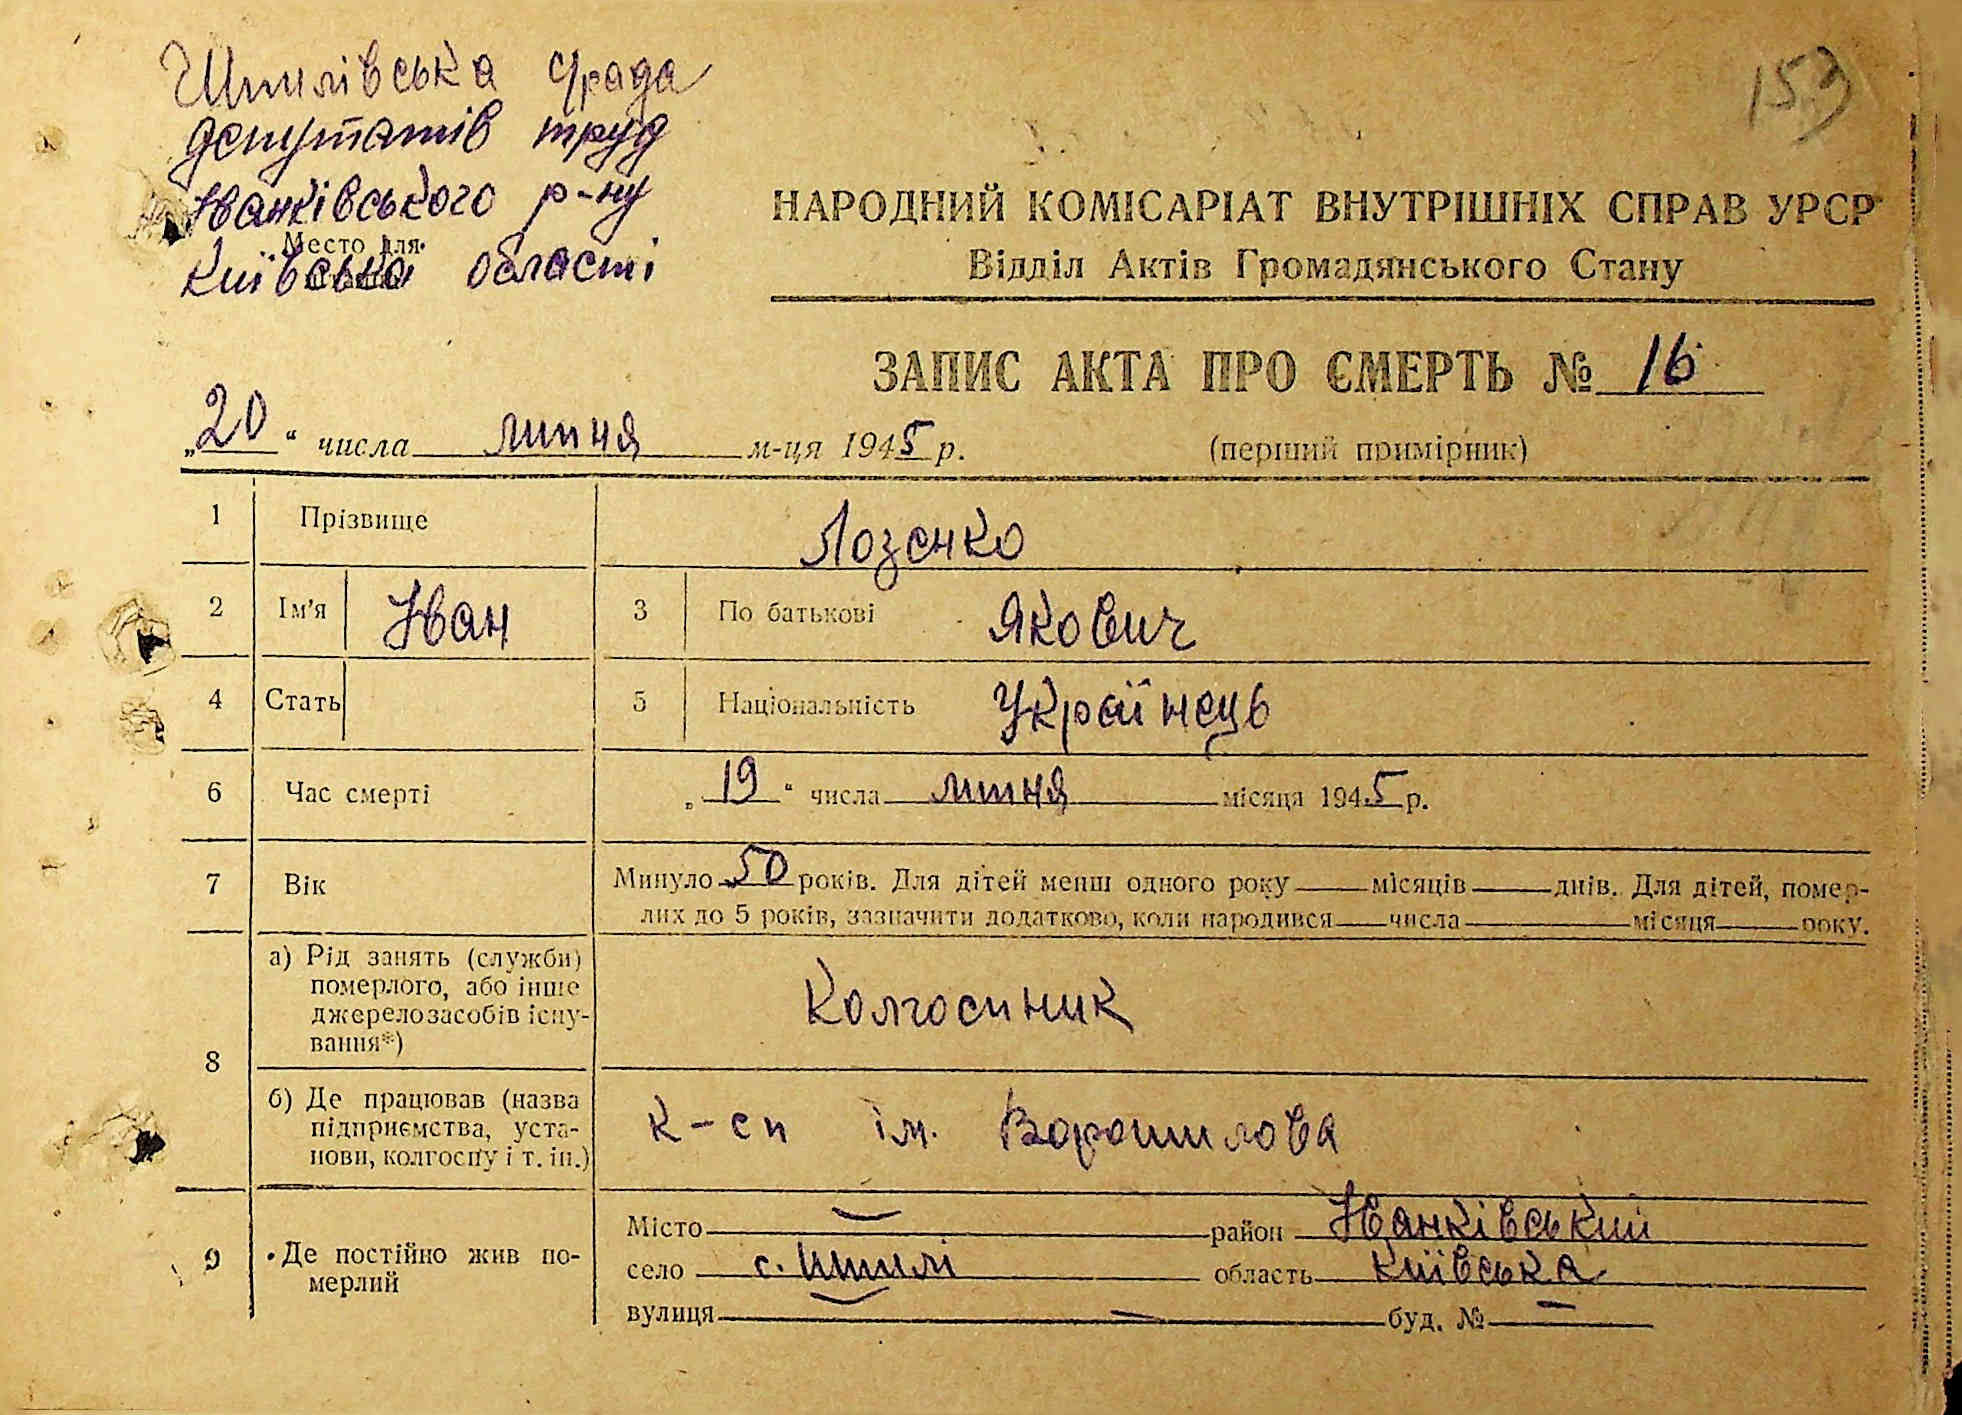 Шпилівська с/рада
депутатів труд
Іванківського р-ну
Место для
Київська області
153
НАРОДНИЙ КОМІСАРІАТ ВНУТРІШНІХ СПРАВ УРСР
Відділ Актів Громадянського Стану
ЗАПИС АКТА ПРО СМЕРТЬ № 16
„20“ числа липня м-ця 1945 р.
(перший примірник)
1 Прізвище Лозенко
2 Ім'я Іван 3 По батькові Якович
4 Стать 5 Національність Українець
6 Час смерті „19“ числа липня місяця 1945 р.
7 Вік Минуло 50 років. Для дітей менш одного року місяців днів. Для дітей, помер-
лих до 5 років, зазначити додатково, коли народився числа місяця року.
8 а) Рід занять (служби)
померлого, або інше
джерело засобів існу-
вання*)
Колгоспник
б) Де працював (назва
підприємства, уста-
нови, колгоспу і т. ін.)
к-сп ім. Ворошилова
9 Де постійно жив по-
мерлий
Місто — район Іванківський
село с. Шпилі область Київська
вулиця — буд. № —